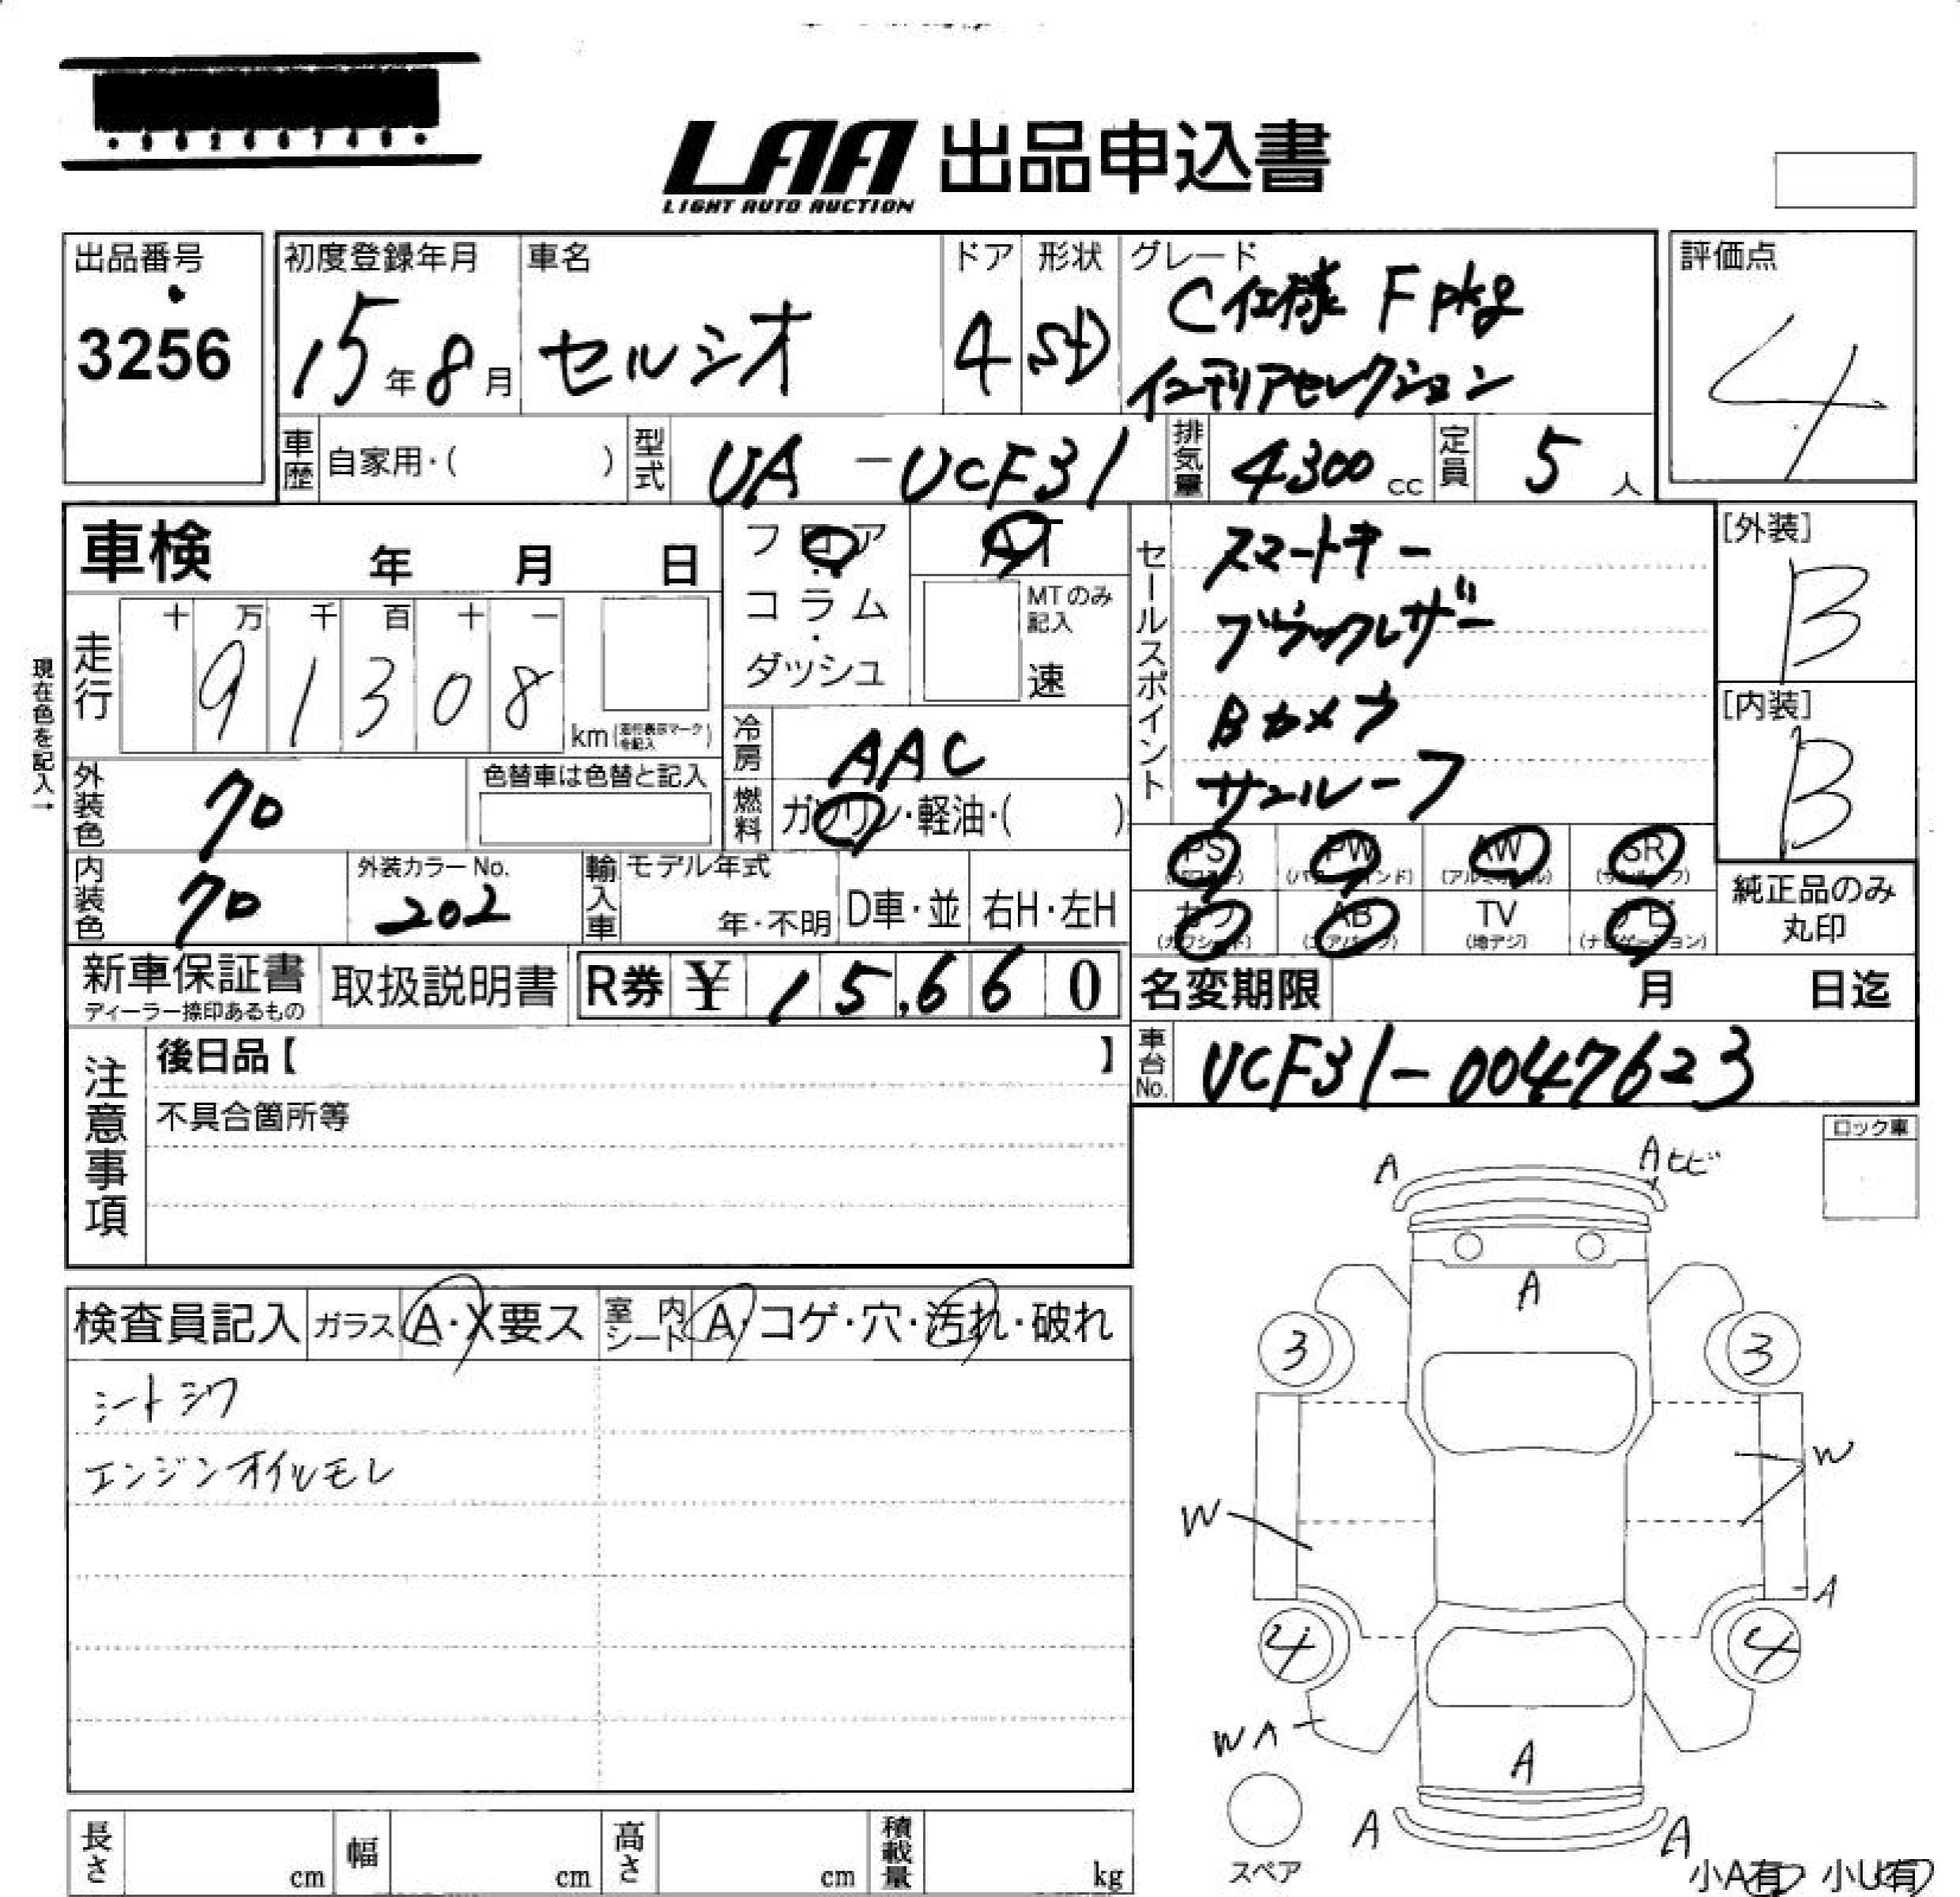 LAA 出品申込書
LIGHT AUTO AUCTION
出品番号
3256
初度登録年月
15年8月
車名
セルシオ
ドア
4
形状
SD
グレード
C仕様 Fpkg
インテリアセレクション
評価点
4
車歴 自家用・( )
型式 UA-UCF31
排気量 4300 cc
定員 5 人
車検 年 月 日
フロア
・
コラム
・
ダッシュ
AT
MTのみ
記入
速
セールスポイント
スマートキー
ブラックレザー
Bカメラ
サンルーフ
[外装]
B
[内装]
B
現在色を記入→
走行
十 万 千 百 十 一
9 1 3 0 8
km(走行表示マークを記入)
冷房 AAC
燃料 ガソリン・軽油・( )
外装色 クロ
色替車は色替と記入
内装色 クロ
外装カラーNo.
202
輸入車
モデル年式
年・不明
D車・並
右H・左H
PS PW AW SR
(パワステ) (パワーウインド) (アルミホイル) (サンルーフ)
カワ AB TV ナビ
(カワシート) (エアバッグ) (地デジ) (ナビゲーション)
純正品のみ
丸印
新車保証書
ディーラー捺印あるもの
取扱説明書
R券 ¥ 15,660
名変期限 月 日迄
車台No. UCF31-0047623
注意事項
後日品【 】
不具合箇所等
ロック車
検査員記入 ガラス A・X要ス 室内シート A・コゲ・穴・汚れ・破れ
シートシワ
エンジンオイルモレ
A
Aヒビ
A
3
3
W
W
A
4
4
WA
A
A
A
スペア
小A有 小U有
長さ cm
幅 cm
高さ cm
積載量 kg